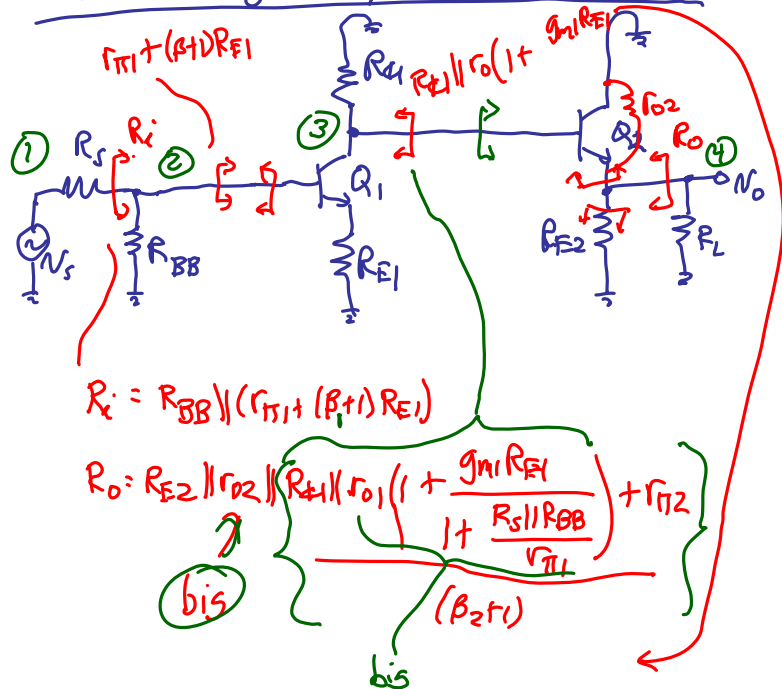 r_π1 + (β+1)R_E1
R_C1 || r_o(1 + g_m1 R_E1
R_C1
r_o2
① R_S R_i ② ③ Q_1 R_O ④ v_o
v_s R_BB R_E1 R_E2 R_L
R_i = R_BB || (r_π1 + (β+1) R_E1)
R_o = R_E2 || r_o2 || { R_C1 || r_o1 (1 + g_m1 R_E1 / (1 + R_S || R_BB / r_π1)) + r_π2 }
(β_2+1)
bis
bis